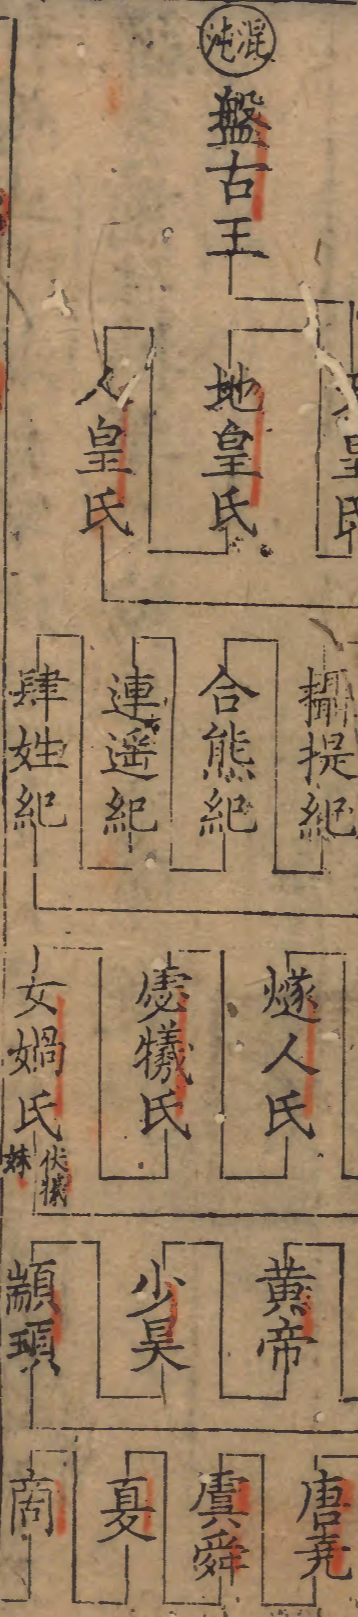 混沌
盤古王
天皇氏
地皇氏
人皇氏
攝提紀
合熊紀
連遥紀
肆姓紀
燧人氏
虙犧氏
女媧氏
伏犠
妹
黄帝
少昊
顓頊
唐尭
虞舜
夏
商